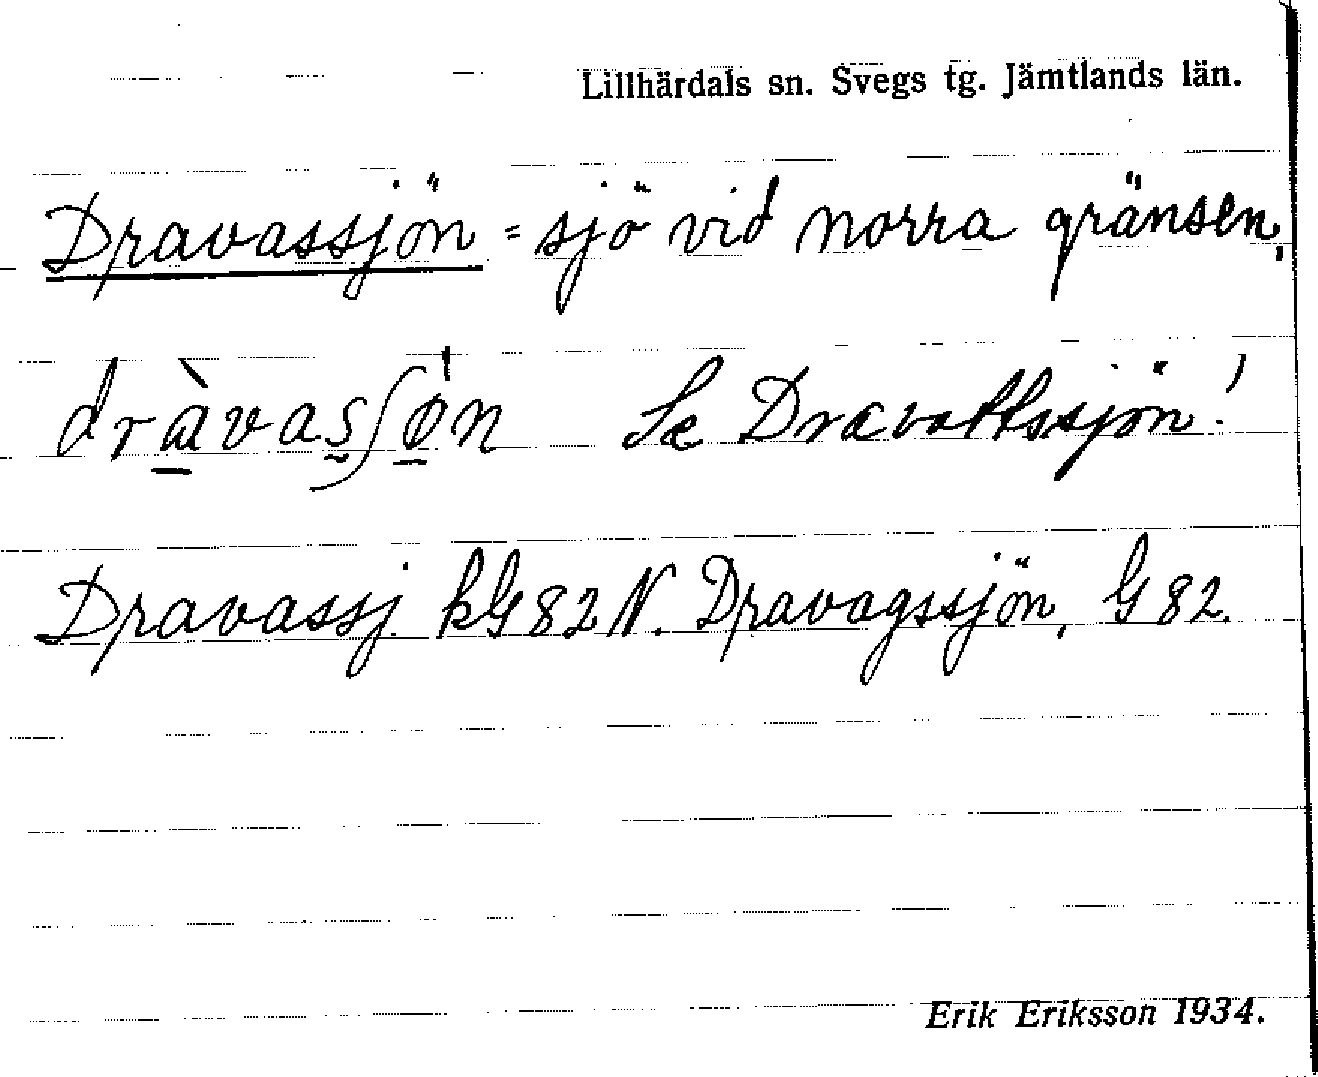 Lillhärdals sn. Svegs tg. Jämtlands län.
Dravassjön = sjö vid norra gränsen,
dràvasʃøn Se Dravattssjön!
Dravassj kG82N. Dravagssjön, G82.
Erik Eriksson 1934.